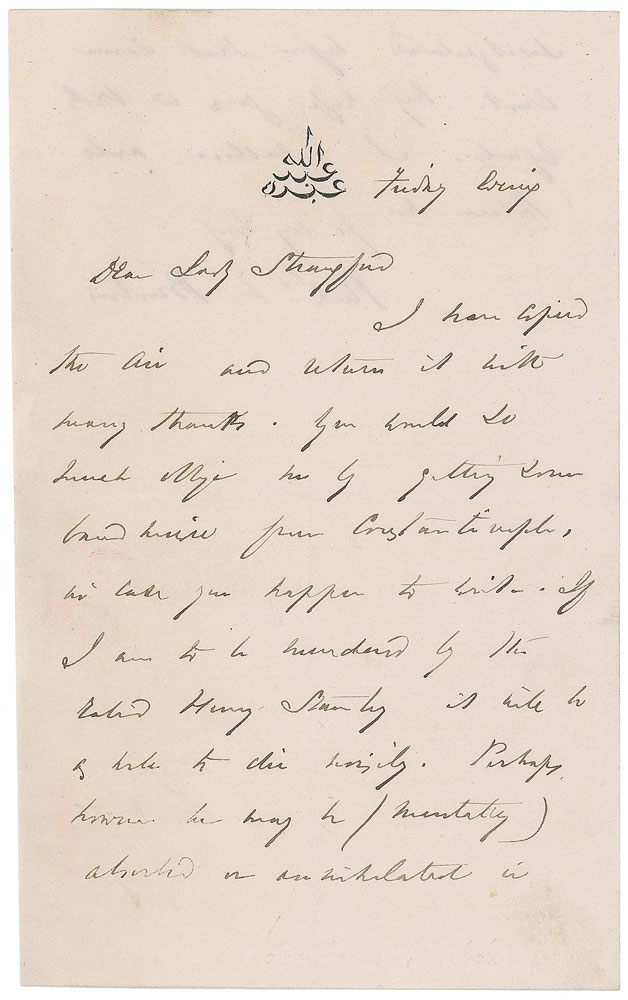 الله
عبد
عبده
Friday Evening
Dear Lady Strangford
I have copied
the air and return it with
many thanks. You would so
much oblige me by getting some
band music from Constantinople,
in case you happen to write. If
I am to be murdered by the
rabid Henry Stanley it will be
as well to die noisily. Perhaps
however he may be (mentally)
absorbed or annihilated in